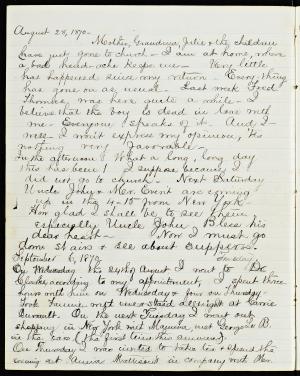 August 28, 1870 -
Mother, Grandma, Julie & the children
have just gone to church - I am at home, where
a bad head-ache keeps me - Very little
has happened since my return - Every thing
has gone on as usual - Last week Fred
Thomkes was here quite a while - I
believe that the boy is dead in love with
me - Everyone speaks of it - And I
well I won't express my opinion, 'tis
nothing very favorable -
In the afternoon. What a long, long day
this has been! I suppose because I
did not go to church - Next Saturday
Uncle John & Mr. Event are coming
up in the 4-15 from New York -
How glad I shall be to see them
especially Uncle John, Bless his
dear heart - Now I must go
down stairs & see about supper -
September 6, 1870 Tuesday
On Wednesday the 24th of August I went to Dr.
Clarks, according to my appointment, I spent three
hours with him on Wednesday & four on Thursday -
Took dinner & staid all night at Carrie
Durault - On the next Tuesday I was out
shopping in New York met Mamma, met George B.
in the cars (the first time this summer) -
On Thursday I was invited to take tea & spend the
evening at Anna in company with Mr.